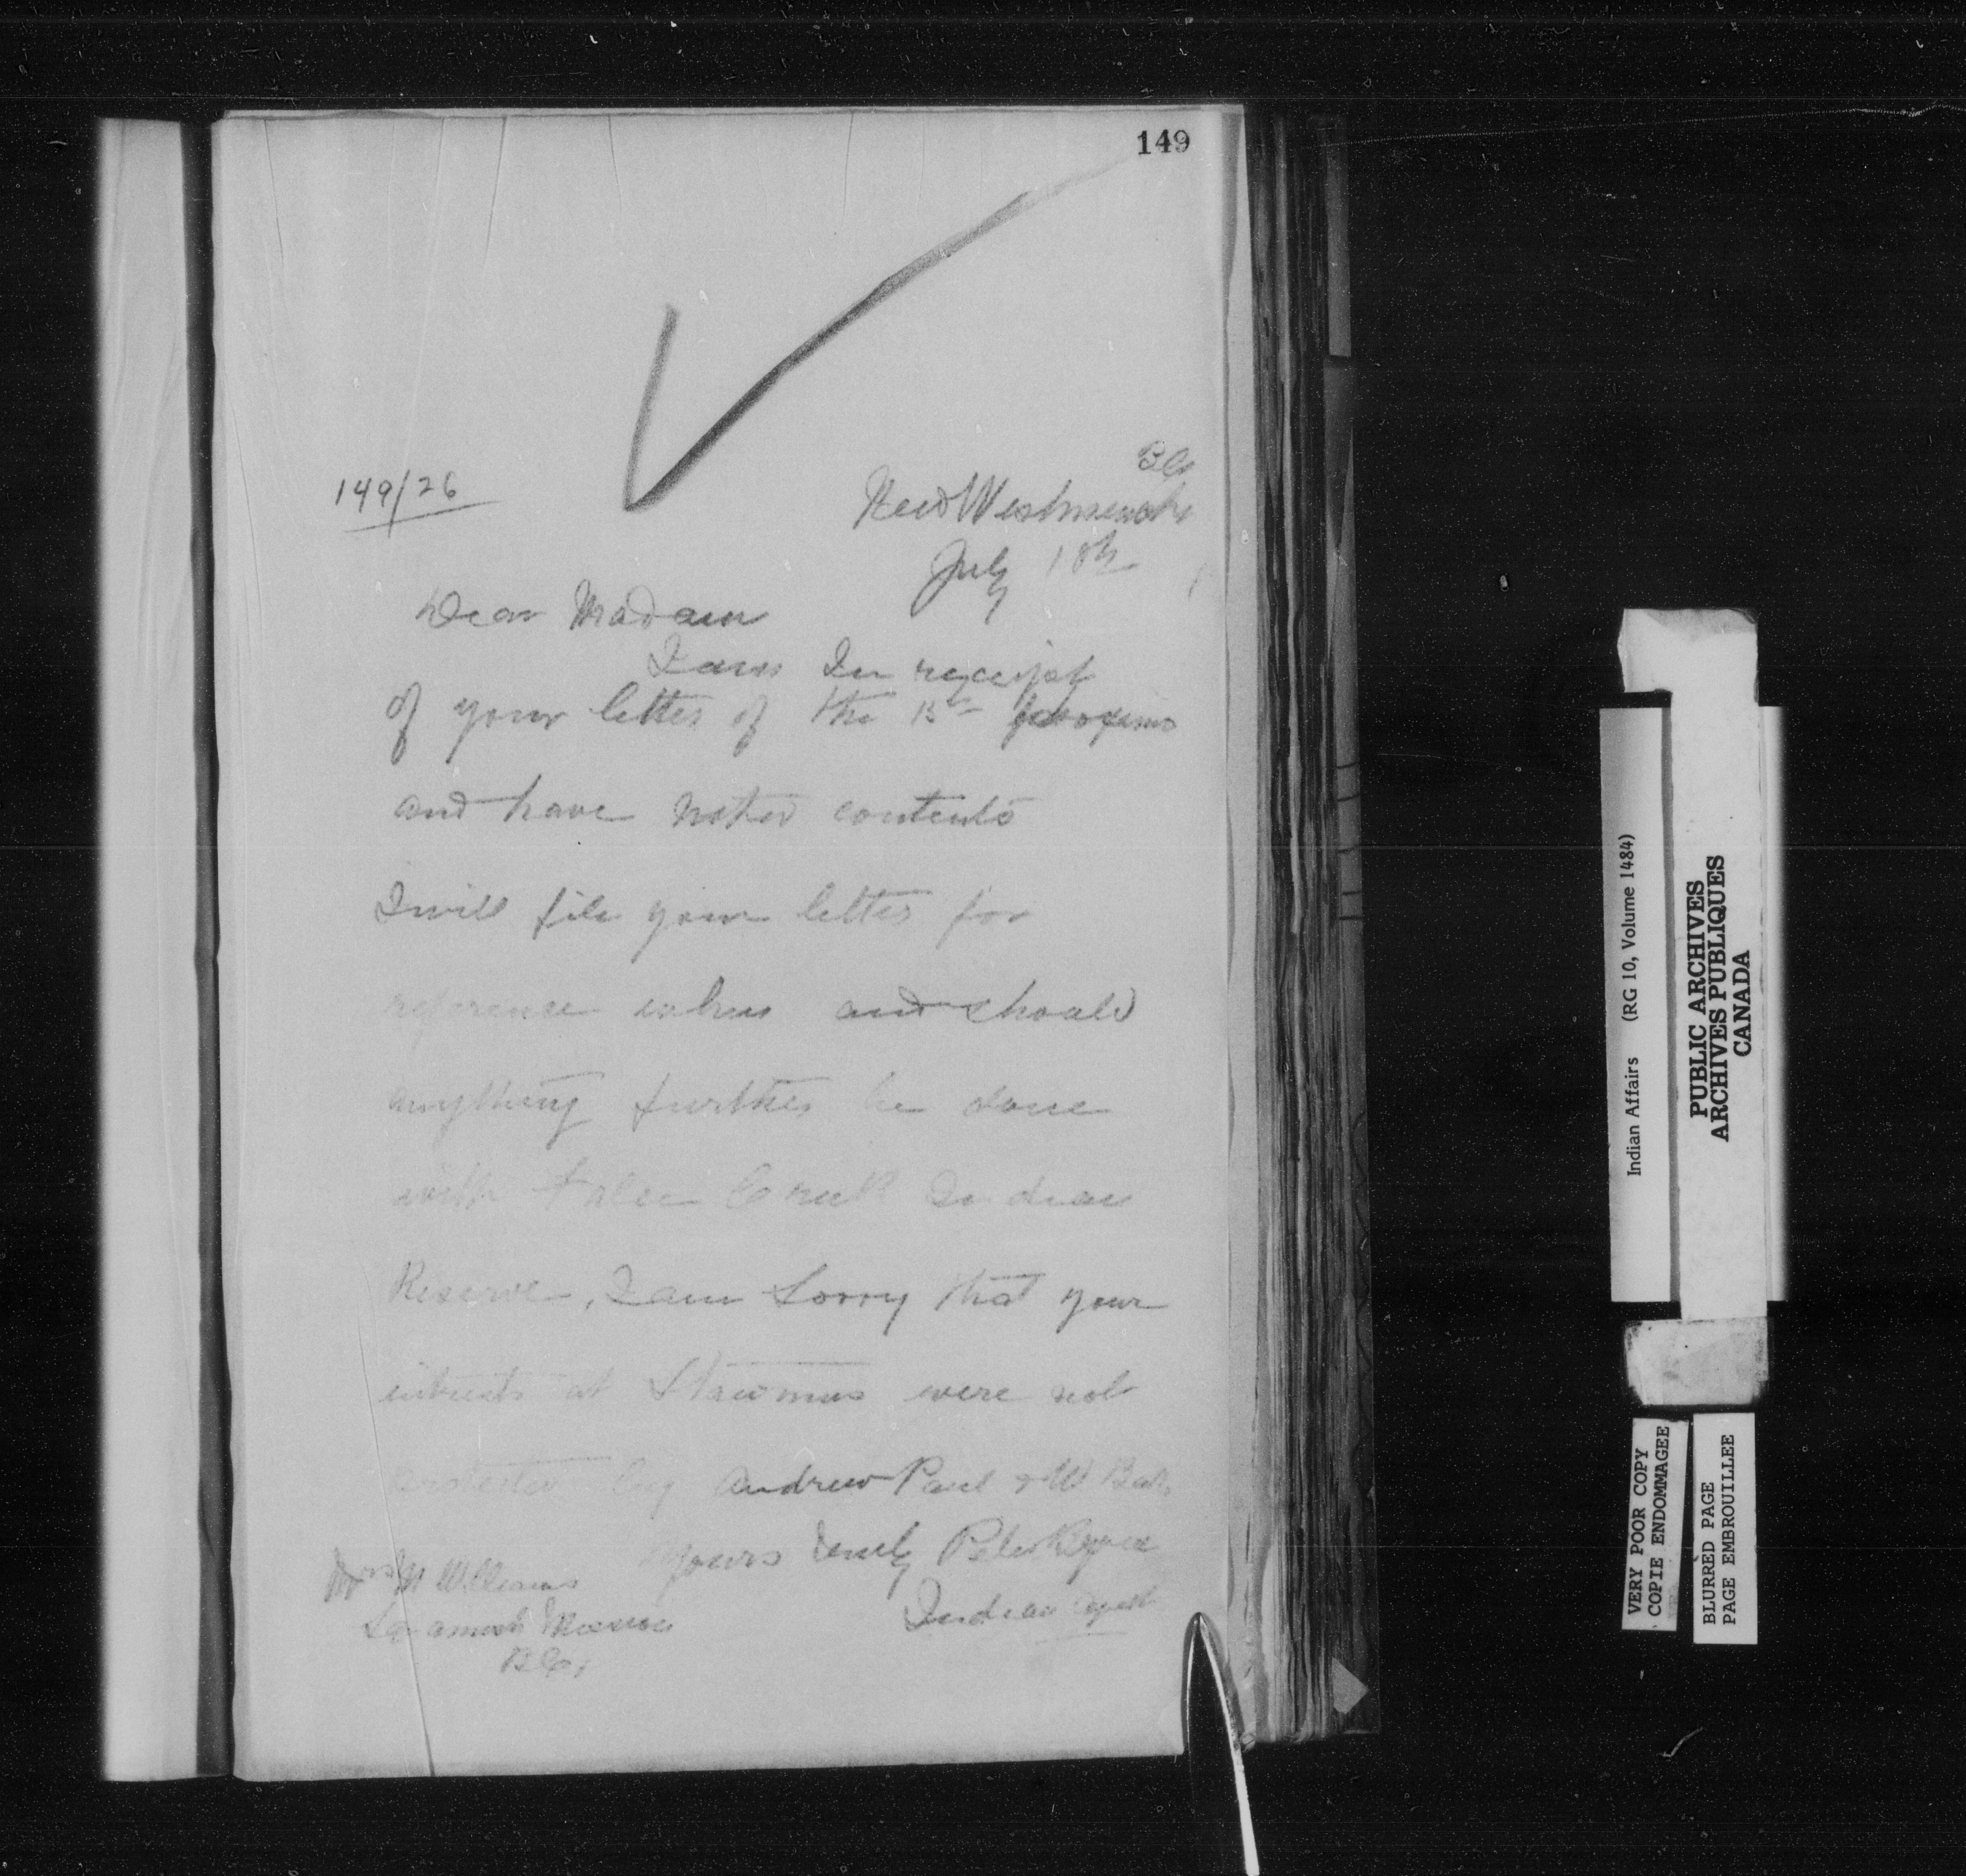 149
149/26
BC
New Westminster
July 18th
Dear Madam
I am In receipt
of your letter of the 15th proximo
and have noted contents
I will file your letter for
reference when and should
anything further be done
with False Creek Indian
Reserve, I am Sorry that your
intrests at Stawmus were not
protected by Andrew Paul & W
Yours truly Peter Byrne
Indian Agent
Mrs M Williams
Squamish Mission
BC,
Indian Affairs (RG 10, Volume 1484)
PUBLIC ARCHIVES
ARCHIVES PUBLIQUES
CANADA
VERY POOR COPY
COPIE ENDOMMAGEE
BLURRED PAGE
PAGE EMBROUILLEE